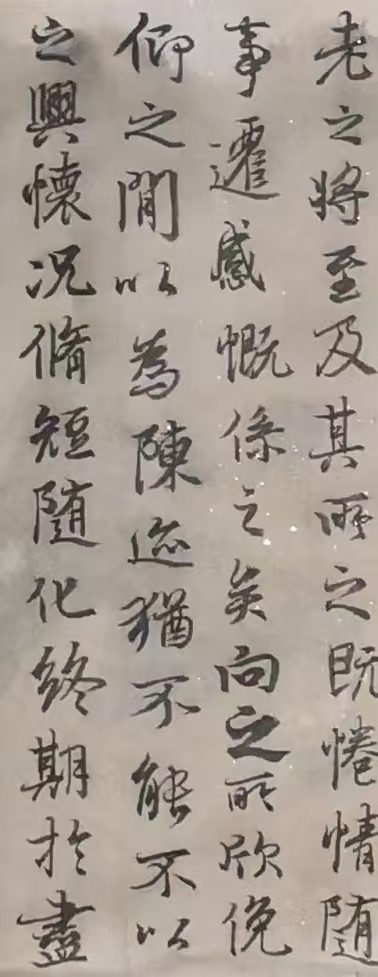 老之將至及其所之既惓情随
事遷感慨係之矣向之所欣俛
仰之閒以為陳迹猶不能不以
之興懷况脩短随化終期於盡